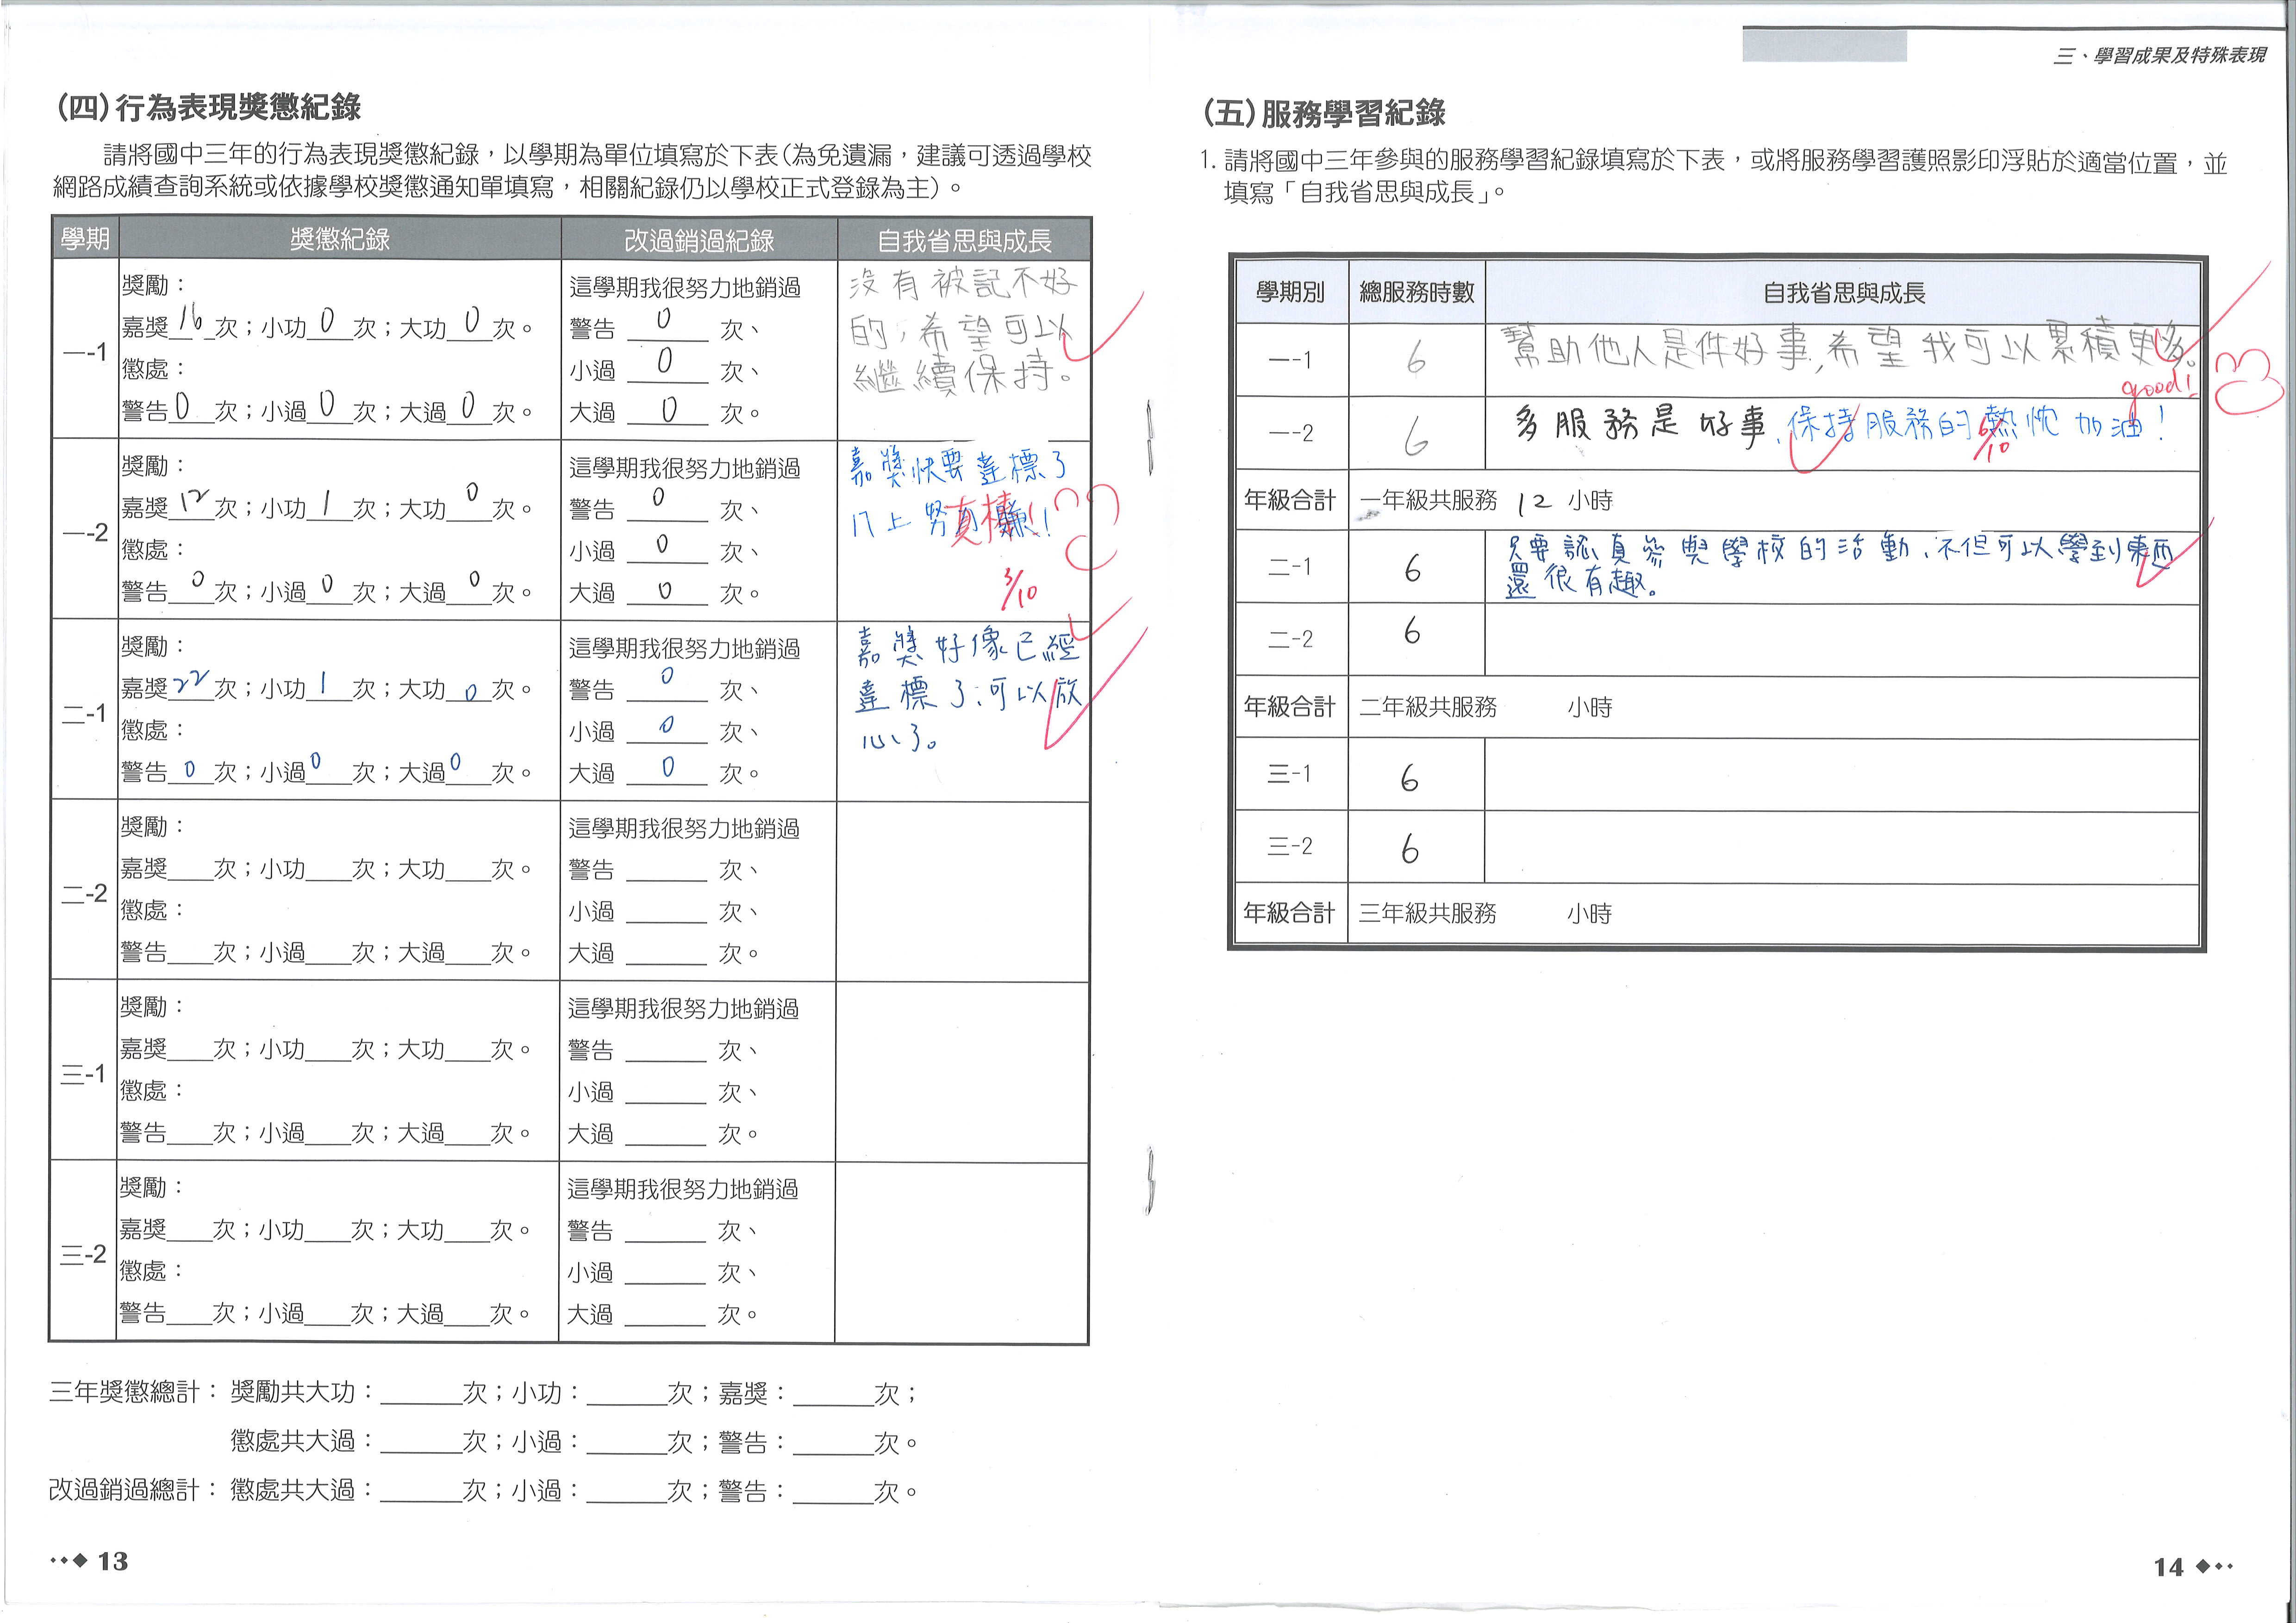 三、學習成果及特殊表現
(四)行為表現獎懲紀錄
請將國中三年的行為表現獎懲紀錄，以學期為單位填寫於下表(為免遺漏，建議可透過學校
網路成績查詢系統或依據學校獎懲通知單填寫，相關紀錄仍以學校正式登錄為主)。
學期 獎懲紀錄 改過銷過紀錄 自我省思與成長
一-1
獎勵：
嘉獎 16 次；小功 0 次；大功 0 次。
懲處：
警告 0 次；小過 0 次；大過 0 次。
這學期我很努力地銷過
警告 0 次、
小過 0 次、
大過 0 次。
沒有被記不好
的，希望可以
繼續保持。
一-2
獎勵：
嘉獎 12 次；小功 1 次；大功 0 次。
懲處：
警告 0 次；小過 0 次；大過 0 次。
這學期我很努力地銷過
警告 0 次、
小過 0 次、
大過 0 次。
嘉獎快要達標了
八上努力賺！
真棒！
3/10
二-1
獎勵：
嘉獎 22 次；小功 1 次；大功 0 次。
懲處：
警告 0 次；小過 0 次；大過 0 次。
這學期我很努力地銷過
警告 0 次、
小過 0 次、
大過 0 次。
嘉獎好像已經
達標了，可以放
心了。
二-2
獎勵：
嘉獎____次；小功____次；大功____次。
懲處：
警告____次；小過____次；大過____次。
這學期我很努力地銷過
警告 ______ 次、
小過 ______ 次、
大過 ______ 次。
三-1
獎勵：
嘉獎____次；小功____次；大功____次。
懲處：
警告____次；小過____次；大過____次。
這學期我很努力地銷過
警告 ______ 次、
小過 ______ 次、
大過 ______ 次。
三-2
獎勵：
嘉獎____次；小功____次；大功____次。
懲處：
警告____次；小過____次；大過____次。
這學期我很努力地銷過
警告 ______ 次、
小過 ______ 次、
大過 ______ 次。
三年獎懲總計：獎勵共大功：______次；小功：______次；嘉獎：______次；
懲處共大過：______次；小過：______次；警告：______次。
改過銷過總計：懲處共大過：______次；小過：______次；警告：______次。
13
(五)服務學習紀錄
1. 請將國中三年參與的服務學習紀錄填寫於下表，或將服務學習護照影印浮貼於適當位置，並
填寫「自我省思與成長」。
學期別 總服務時數 自我省思與成長
一-1 6 幫助他人是件好事，希望我可以累積更多。
good!
一-2 6 多服務是好事，保持服務的熱忱加油！
年級合計 一年級共服務 12 小時
二-1 6 只要認真參與學校的活動，不但可以學到東西
還很有趣。
二-2 6
年級合計 二年級共服務 小時
三-1 6
三-2 6
年級合計 三年級共服務 小時
14